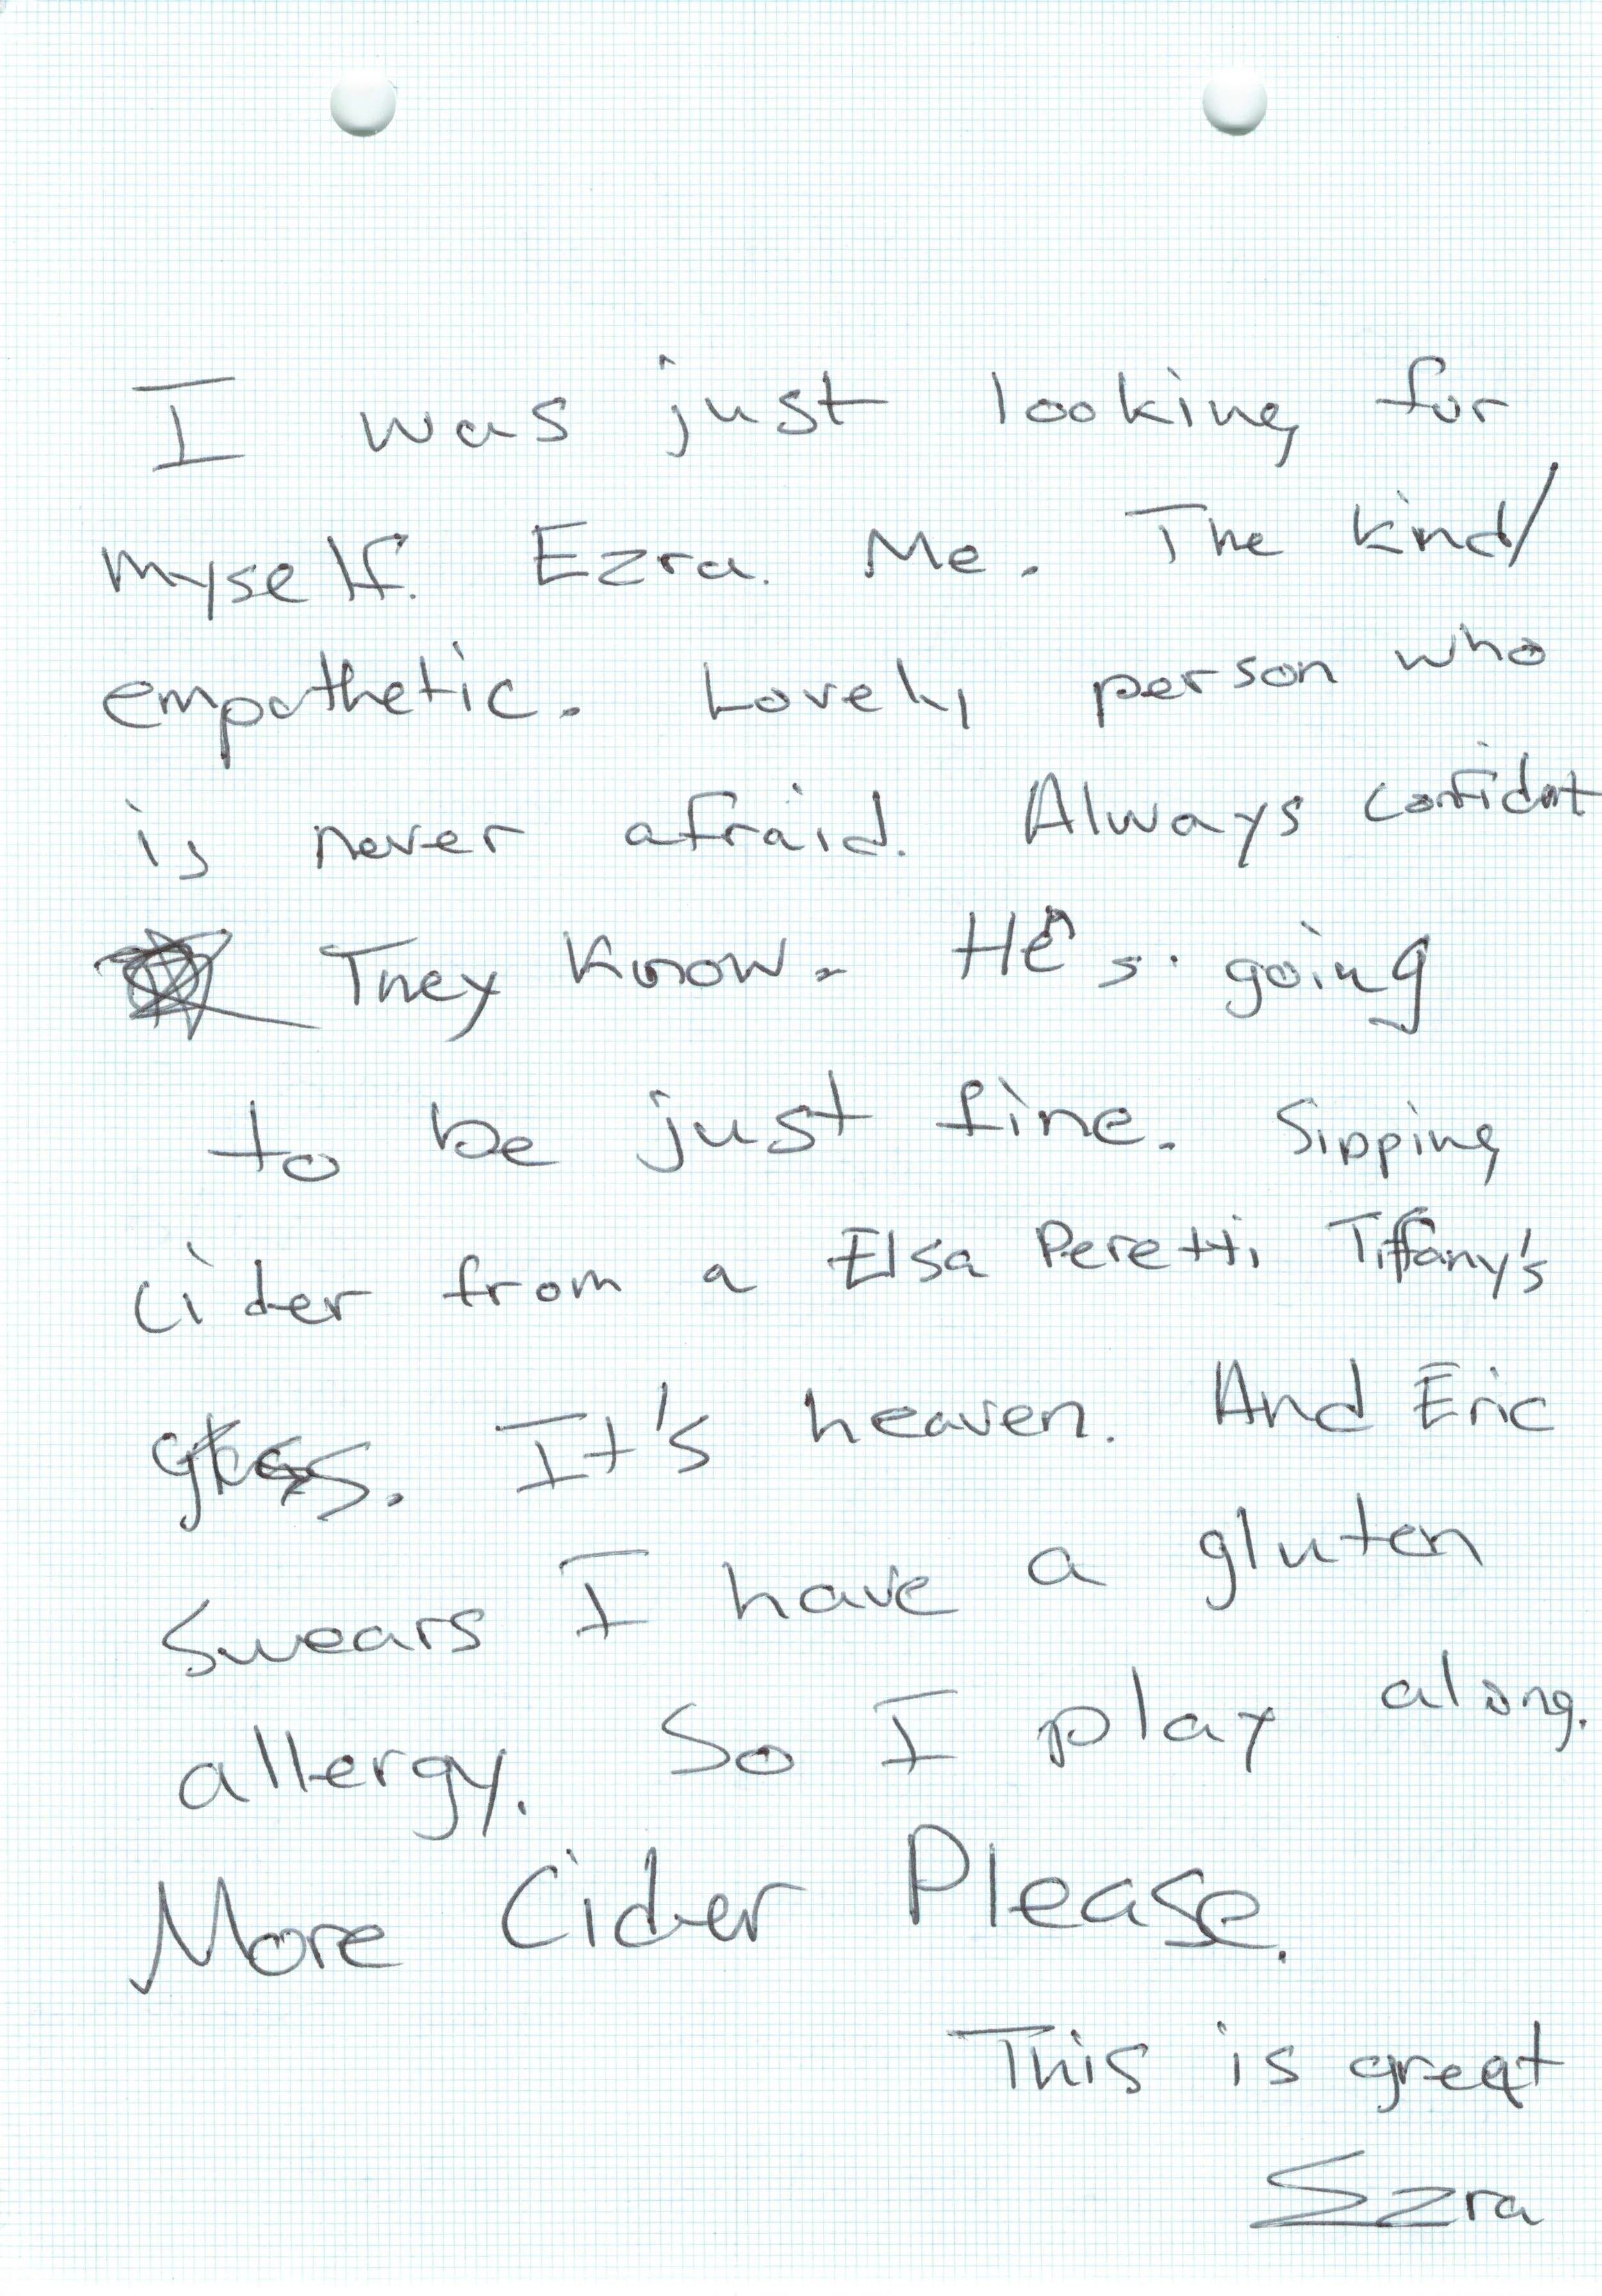 I was just looking for
myself. Ezra. Me. The kind/
empathetic. Lovely person who
is never afraid. Always confident
They know. He's. going
to be just fine. Sipping
cider from a Elsa Peretti Tiffany's
glass. It's heaven. And Eric
swears I have a gluten
allergy. So I play along.
More Cider Please.
This is great
Ezra